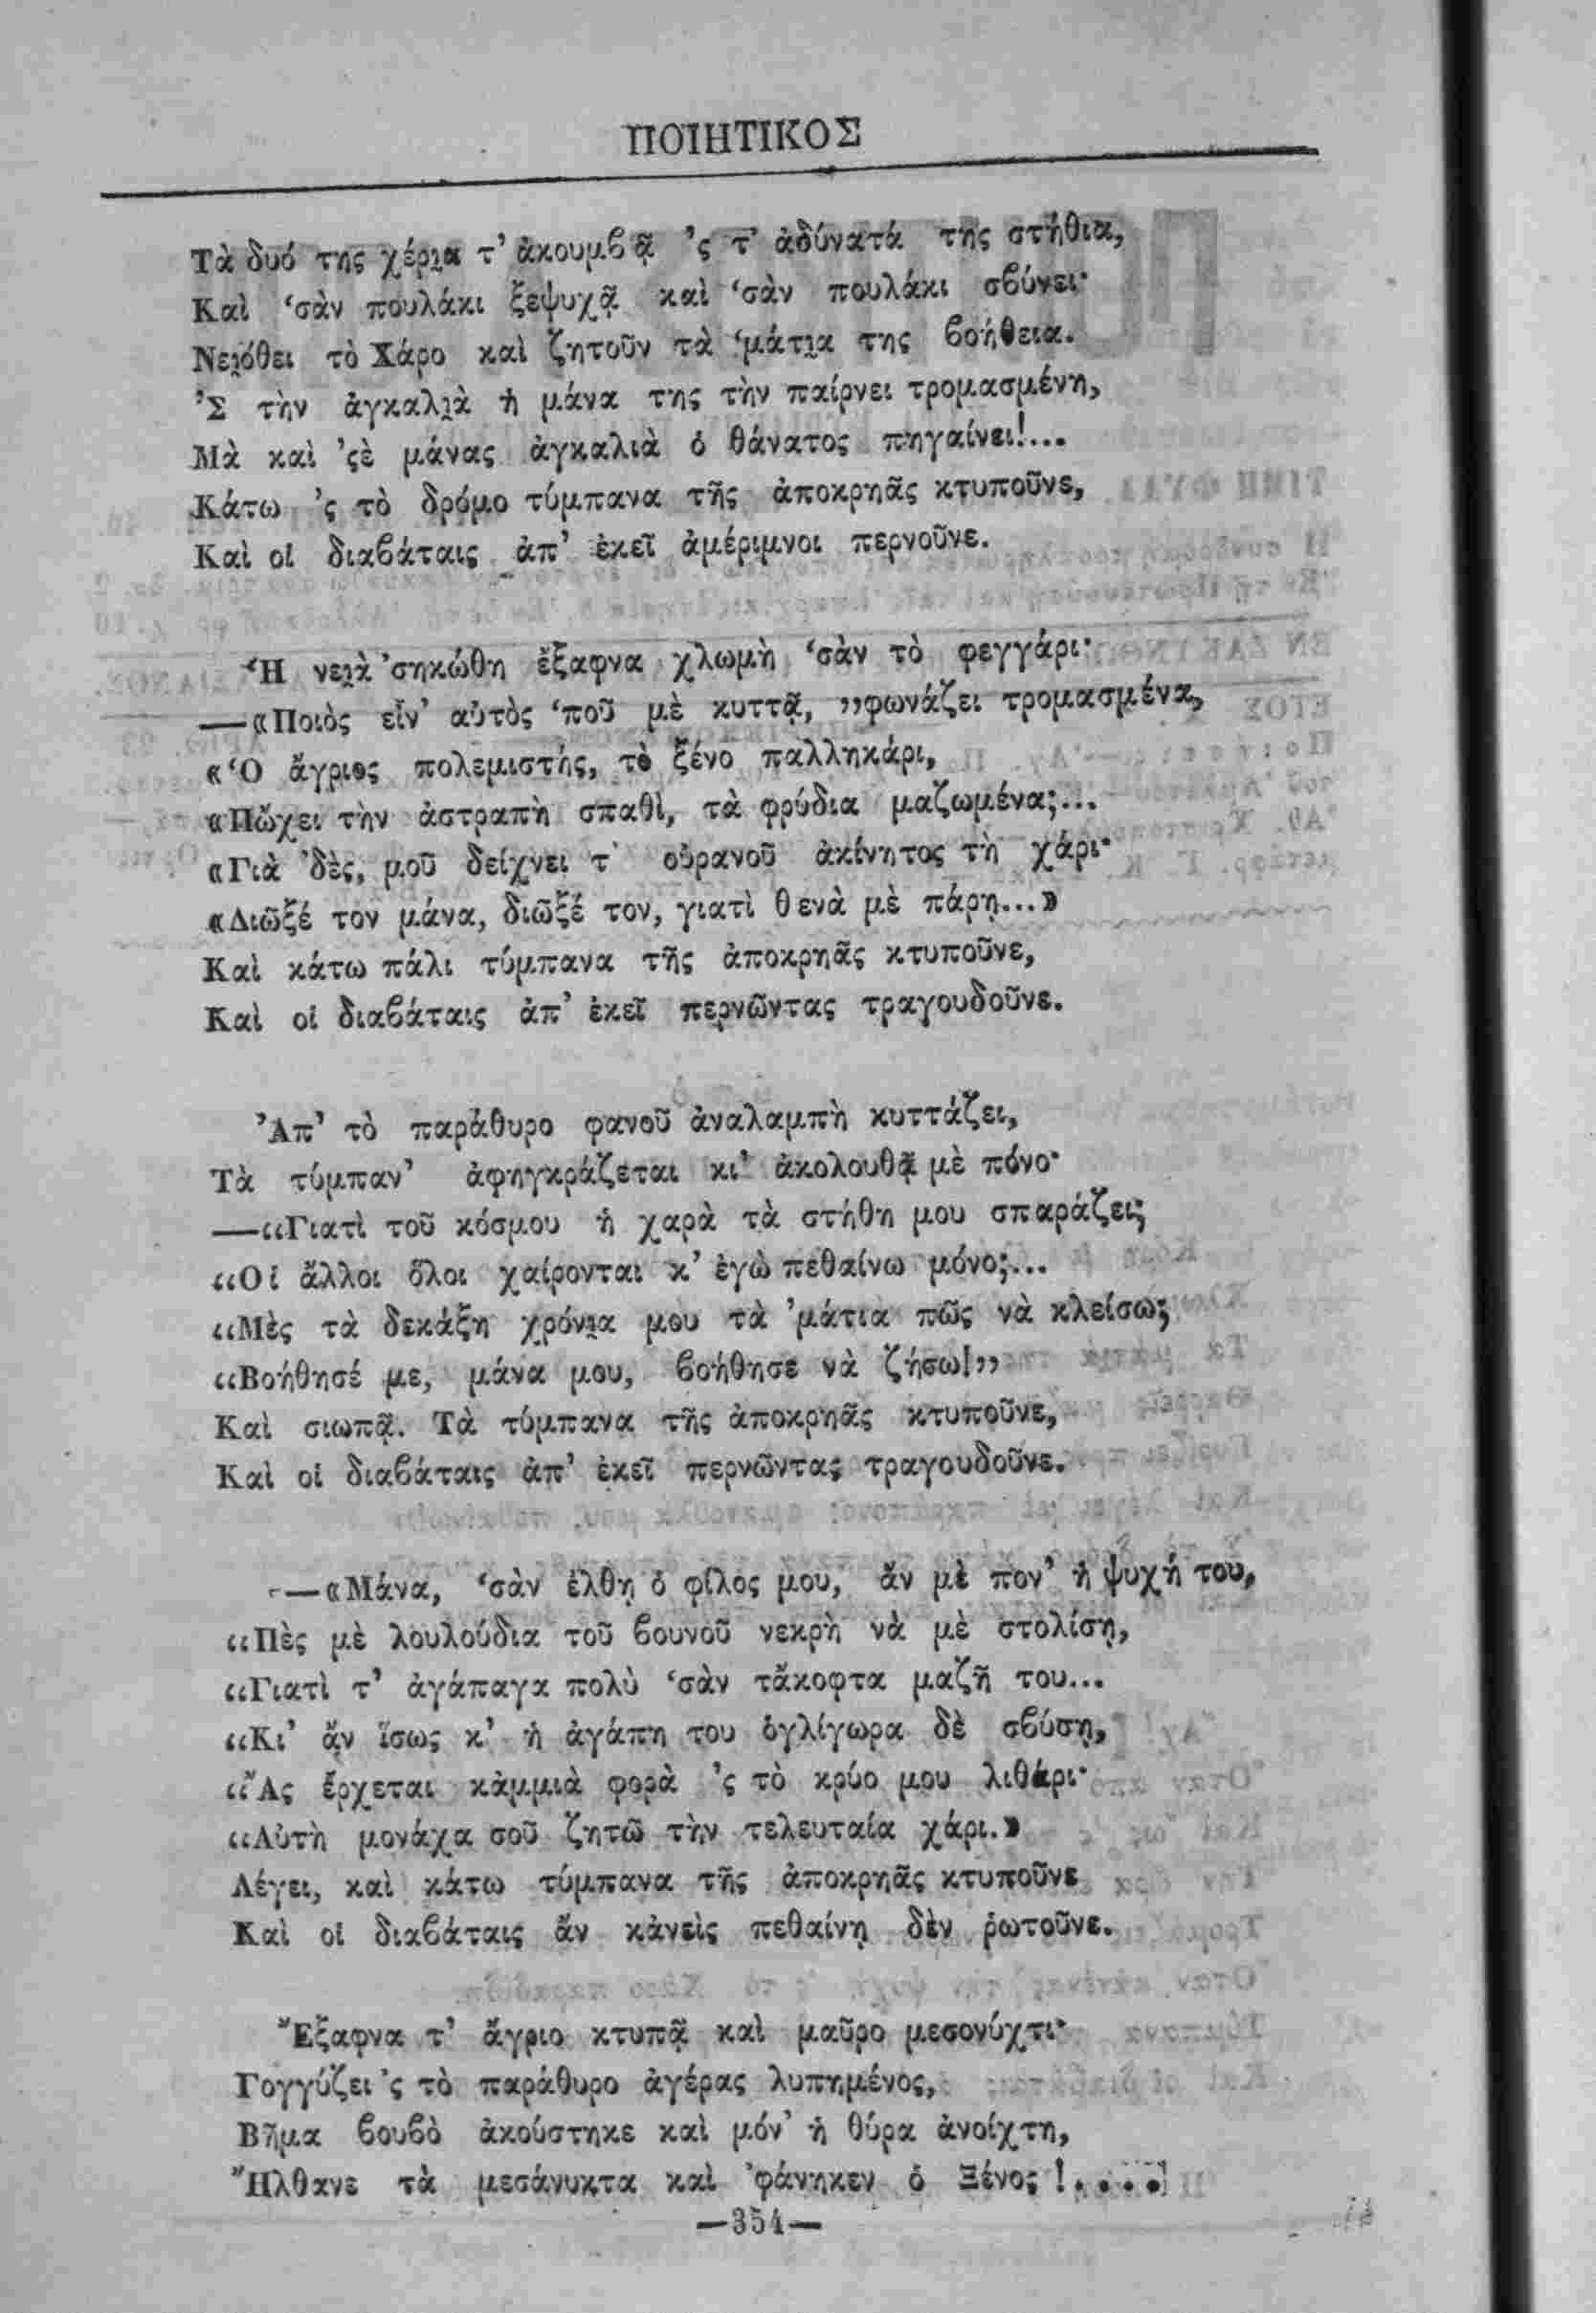 ΠΟΙΗΤΙΚΟΣ
Τὰ δυό της χέρια τ’ ἀκουμβᾷ ’ς τ’ ἀδύνατά της στήθια,
Καὶ ‘σὰν πουλάκι ξεψυχᾷ καὶ ‘σὰν πουλάκι σβύνει·
Νειόθει τὸ Χάρο καὶ ζητοῦν τὰ ‘μάτια της βοήθεια.
’Σ τὴν ἀγκαλιὰ ἡ μάνα της τὴν παίρνει τρομασμένη,
Μὰ καὶ ’ςὲ μάνας ἀγκαλιὰ ὁ θάνατος πηγαίνει!...
Κάτω ’ς τὸ δρόμο τύμπανα τῆς ἀποκρηᾶς κτυποῦνε,
Καὶ οἱ διαβάταις ἀπ’ ἐκεῖ ἀμέριμνοι περνοῦνε.
Ἡ νειὰ ’σηκώθη ἔξαφνα χλωμὴ ‘σὰν τὸ φεγγάρι·
—«Ποιὸς εἶν’ αὐτὸς ‘ποῦ μὲ κυττᾷ, ”φωνάζει τρομασμένα,
«Ὁ ἄγριος πολεμιστής, τὸ ξένο παλληκάρι,
«Πὤχει τὴν ἀστραπὴ σπαθὶ, τὰ φρύδια μαζωμένα;...
«Γιὰ ’δὲς, μοῦ δείχνει τ’ οὐρανοῦ ἀκίνητος τὴ χάρι·
«Διῶξέ τον μάνα, διῶξέ τον, γιατὶ θενὰ μὲ πάρῃ...»
Καὶ κάτω πάλι τύμπανα τῆς ἀποκρηᾶς κτυποῦνε,
Καὶ οἱ διαβάταις ἀπ’ ἐκεῖ περνῶντας τραγουδοῦνε.
Ἀπ’ τὸ παράθυρο φανοῦ ἀναλαμπὴ κυττάζει,
Τὰ τύμπαν’ ἀφηγκράζεται κι’ ἀκολουθᾷ μὲ πόνο·
—“Γιατὶ τοῦ κόσμου ἡ χαρὰ τὰ στήθη μου σπαράζει;
“Οἱ ἄλλοι ὅλοι χαίρονται κ’ ἐγὼ πεθαίνω μόνο;...
“Μὲς τὰ δεκάξη χρόνια μου τὰ ’μάτια πῶς νὰ κλείσω;
“Βοήθησέ με, μάνα μου, βοήθησε νὰ ζήσω!”
Καὶ σιωπᾷ. Τὰ τύμπανα τῆς ἀποκρηᾶς κτυποῦνε,
Καὶ οἱ διαβάταις ἀπ’ ἐκεῖ περνῶντας τραγουδοῦνε.
—«Μάνα, ‘σὰν ἐλθῃ ὁ φίλος μου, ἄν μὲ πον’ ἡ ψυχή του,
“Πὲς μὲ λουλούδια τοῦ βουνοῦ νεκρὴ νὰ μὲ στολίσῃ,
“Γιατὶ τ’ ἀγάπαγα πολὺ ‘σὰν τἄκοφτα μαζῆ του...
“Κι’ ἄν ἴσως κ’ ἡ ἀγάπη του ὀγλίγωρα δὲ σβύσῃ,
“Ἄς ἔρχεται κἀμμιὰ φορὰ ’ς τὸ κρύο μου λιθάρι·
“Αὐτὴ μονάχα σοῦ ζητῶ τὴν τελευταία χάρι.»
Λέγει, καὶ κάτω τύμπανα τῆς ἀποκρηᾶς κτυποῦνε
Καὶ οἱ διαβάταις ἄν κἀνεὶς πεθαίνῃ δὲν ῥωτοῦνε.
Ἔξαφνα τ’ ἄγριο κτυπᾷ καὶ μαῦρο μεσονύχτι·
Γογγύζει ’ς τὸ παράθυρο ἀγέρας λυπημένος,
Βῆμα βουβὸ ἀκούστηκε καὶ μόν’ ἡ θύρα ἀνοίχτη,
Ἤλθανε τὰ μεσάνυκτα καὶ ’φάνηκεν ὁ Ξένος!....
—354—